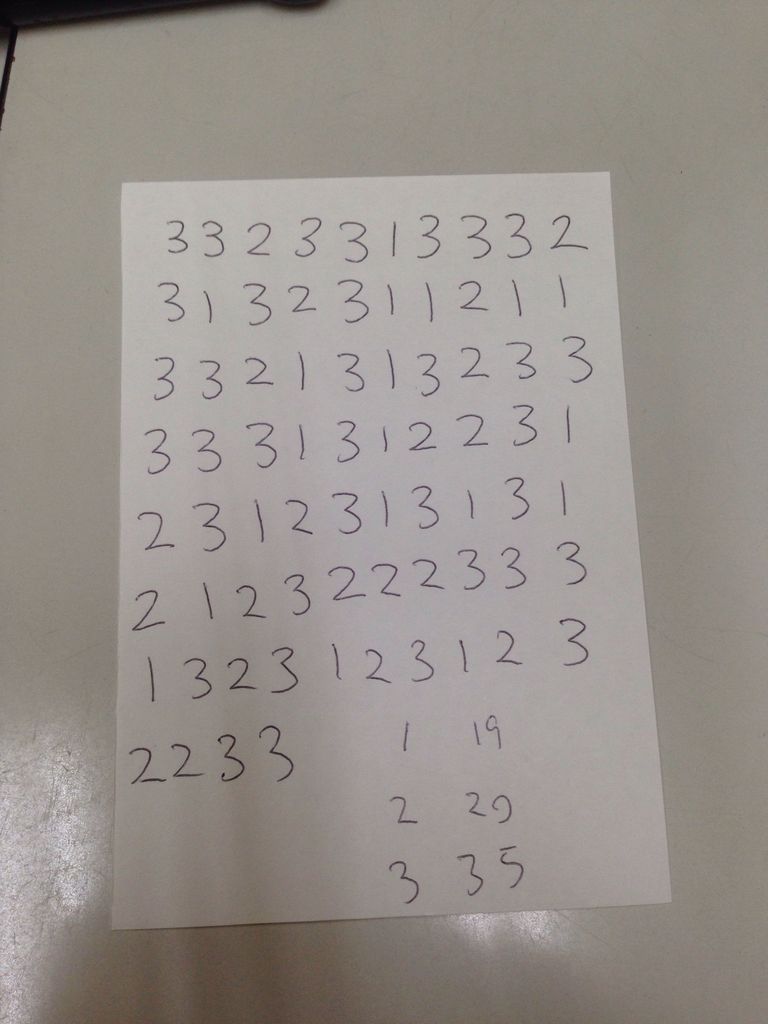 3 3 2 3 3 1 3 3 3 2
3 1 3 2 3 1 1 2 1 1
3 3 2 1 3 1 3 2 3 3
3 3 3 1 3 1 2 2 3 1
2 3 1 2 3 1 3 1 3 1
2 1 2 3 2 2 2 3 3 3
1 3 2 3 1 2 3 1 2 3
2 2 3 3
1 19
2 20
3 35